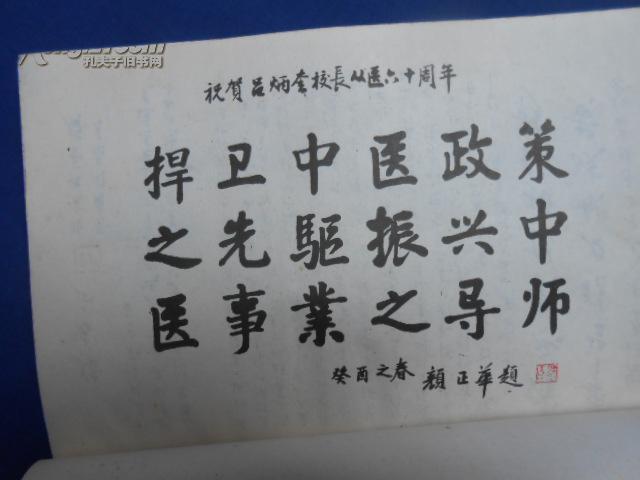 孔夫子旧书网
祝賀吕炳奎校長从医六十周年
捍卫中医政策
之先駆振兴中
医事業之导师
癸酉之春 顔正華題